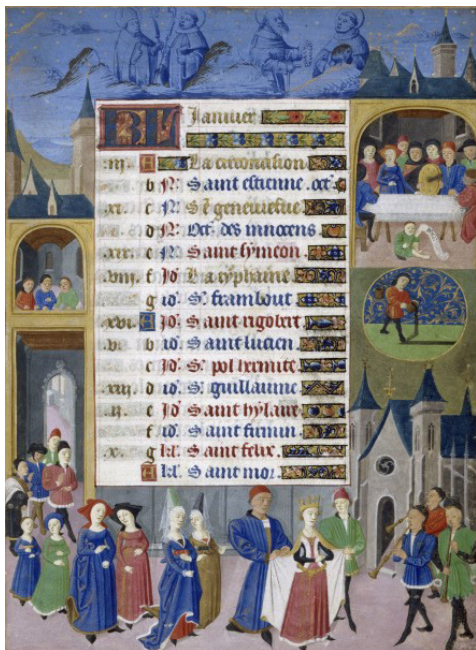 KL Januier
.iii. A La
b N. Saint estienne. oct.
.xi. c N. St geneuiefue
d N. Oct. des innocens
.xix. e N. Saint symeon
.viii. f Id La typhaine
g id. St frambout
.xvi. A id. Saint rigobert
.v. b id. Saint lucien
c Id. St pol hermite
.xiii. d id. St guillaume
.ii. e Id Saint hylaire
f id. Saint firmin
.x. g kl. Saint felix
A kl. Saint mor